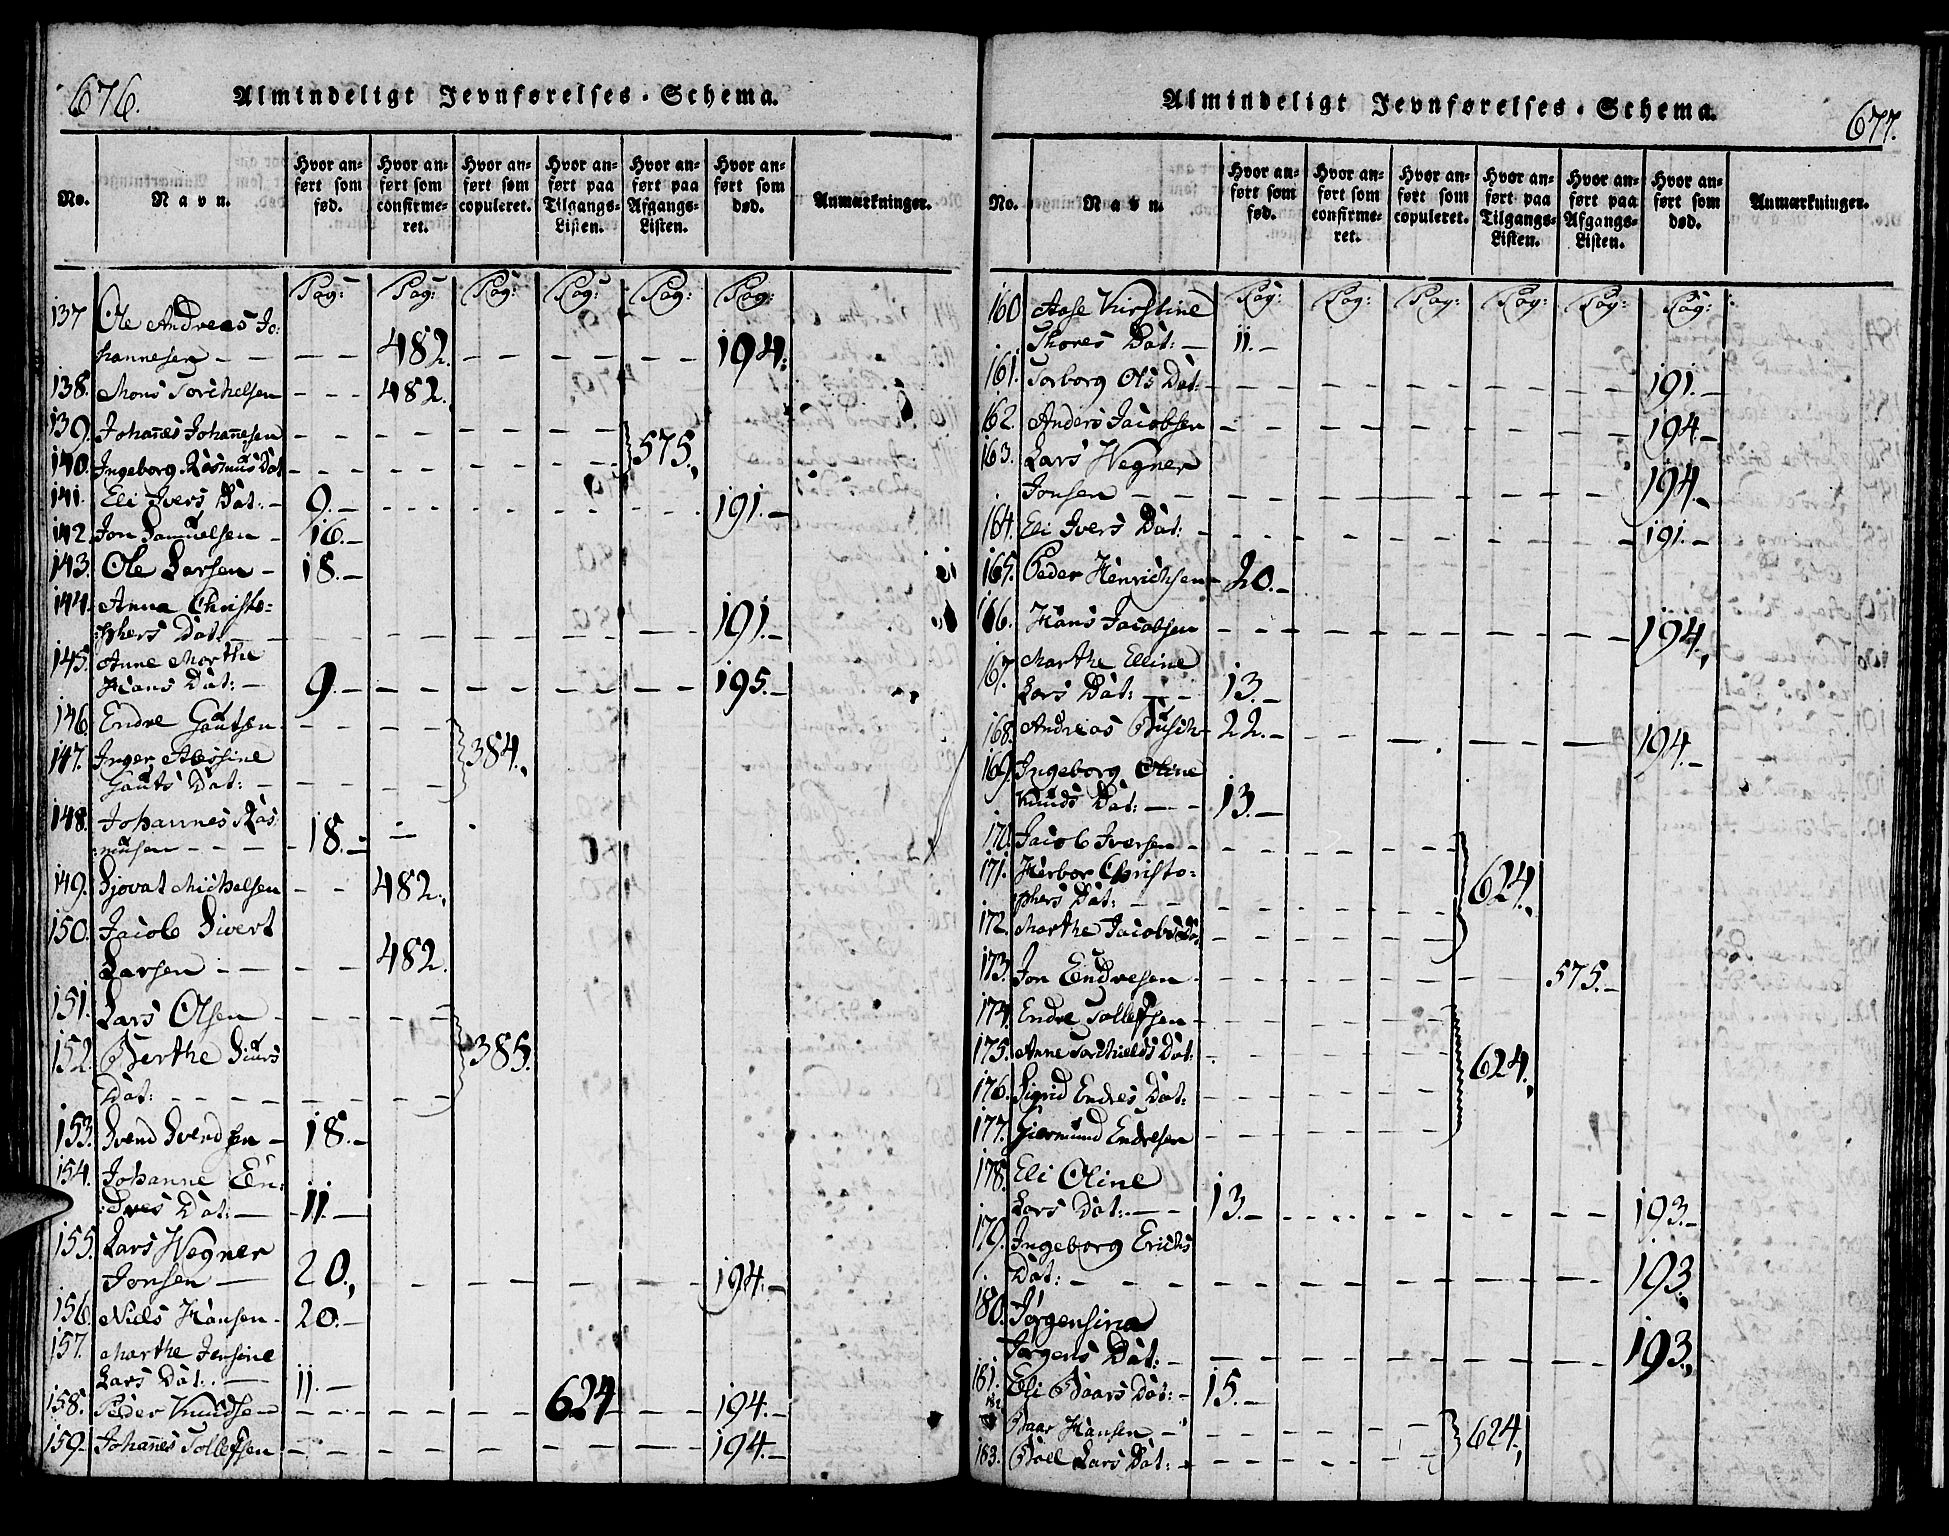 676.
Almindeligt Jevnførelses-Schema.
No. Navn. Hvor anført som fød. Hvor anført som confirmeret. Hvor anført som copuleret. Hvor anført paa Tilgangs-Listen. Hvor anført paa Afgangs-Listen. Hvor anført som død. Anmærkninger.
Pag: Pag: Pag: Pag: Pag: Pag:
137 Ole Andreas Jo:
hannesen - - - 482. - - - - 194.
138. Mons Torchelsen - - - 482.
139. Johañes Johañesen - - - - 575.
140. Ingeborg Rasmus Dat - - - -
141. Eli Ivers Dat: - 9. - - - - - 191. -
142. Jon Samuelsen - 16. -
143. Ole Larsen - 18. -
144. Anna Christo:
:phers Dat: - - - - - - 191. -
145. Anne Marthe
Hans Dat: - 9. - - - - - 195. -
146. Endre Gautsen - - - 384.
147. Inger
Gauts Dat: - - -
148. Johannes Ras:
musen - - - 18. -
149. Sjovat Michelsen - - 482.
150. Jacob Sivert
Larsen - - - 482.
151. Lars Olsen - - - 385.
152. Berthe Siurs
Dat: - - - -
153. Svend Svendsen - 18. -
154. Johanne En:
:dres Dat: - 11. -
155. Lars Wegner
Jonsen - 20. - - - - - 194. -
156. Niels Hansen - 20. -
157. Marthe Jensine
Lars Dat: - 11. -
158. Peder Knudsen - - - - 624 - - 194. -
159. Johañes Tollefsen - - - - - - 194. -
Almindeligt Jevnførelses-Schema.
677.
No. Navn. Hvor anført som fød. Hvor anført som confirmeret. Hvor anført som copuleret. Hvor anført paa Tilgangs-Listen. Hvor anført paa Afgangs-Listen. Hvor anført som død. Anmærkninger.
Pag: Pag: Pag: Pag: Pag: Pag:
160 Aase Kirstine
Thores Dat: - 11. -
161. Torborg Ols Dat: - - - - - - 191. -
162. Anders Jacobsen - - - - - - 194. -
163. Lars Wegner
Jonsen - - - - - - - 194. -
164. Eli Ivers Dat: - - - - - - 191. -
165. Peder Henrichsen 20. -
166. Hans Jacobsen - - - - - - 194.
167. Marthe Elline
Lars Dat: - - 13. -
168. Andreas Busch - 22. - - - - - 194. -
169. Ingeborg Oline
Knuds Dat: - - 13. -
170. Jacob Iversen - - - - 624.
171. Herbor Christo:
phers Dat: - - - - -
172. Marthe Jacobs Dat - - - -
173. Jon Endresen - - - - - 575. -
174. Endre Tollefsen - - - - 624.
175. Anne Torchields Dat: - - -
176. Sigrid Endres Dat: - - -
177. Giermund Endresen - - -
178. Eli Oline
Lars Dat: - - 13. - - - - - 193. -
179. Ingeborg Erichs
Dat: - - - - - - - 193.
180. Jørgensina
Jørgens Dat: - - - - - - 193.
181. Eli Baars Dat: - 15. -
182 Baar Hansen - - - - 624.
183. Boel Lars Dat: - - - -